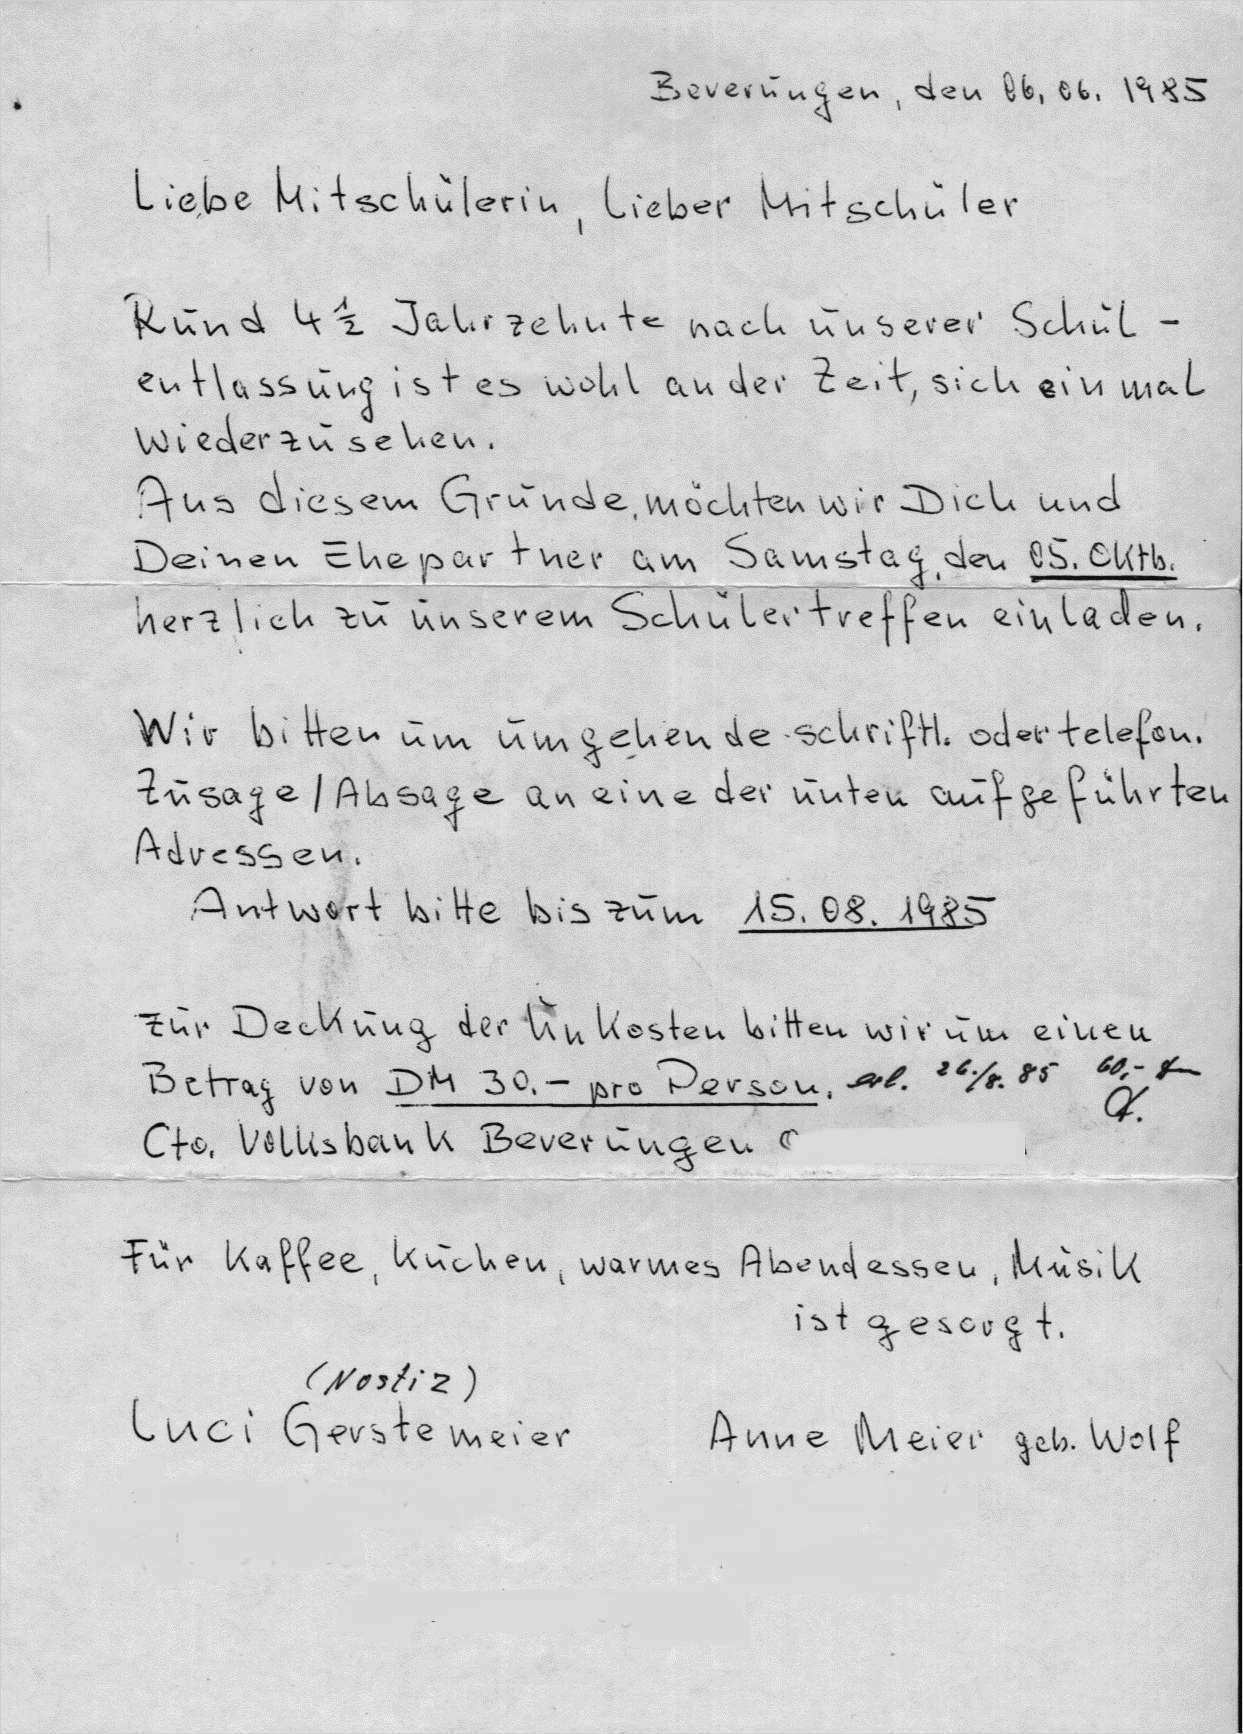 Beverungen, den 06.06.1985
Liebe Mitschülerin, lieber Mitschüler
Rund 4 ½ Jahrzehnte nach unserer Schul-
entlassung ist es wohl an der Zeit, sich einmal
wiederzusehen.
Aus diesem Grunde, möchten wir Dich und
Deinen Ehepartner am Samstag, den 05. Oktb.
herzlich zu unserem Schülertreffen einladen.
Wir bitten um umgehende schriftl. oder telefon.
Zusage/Absage an eine der unten aufgeführten
Adressen.
Antwort bitte bis zum 15.08.1985
Zur Deckung der Unkosten bitten wir um einen
Betrag von DM 30.- pro Person. erl. 26./8. 85 60,-
Cto. Volksbank Beverungen
Für Kaffee, Kuchen, warmes Abendessen, Musik
ist gesorgt.
(Nostiz)
Luci Gerstemeier Anne Meier geb. Wolf